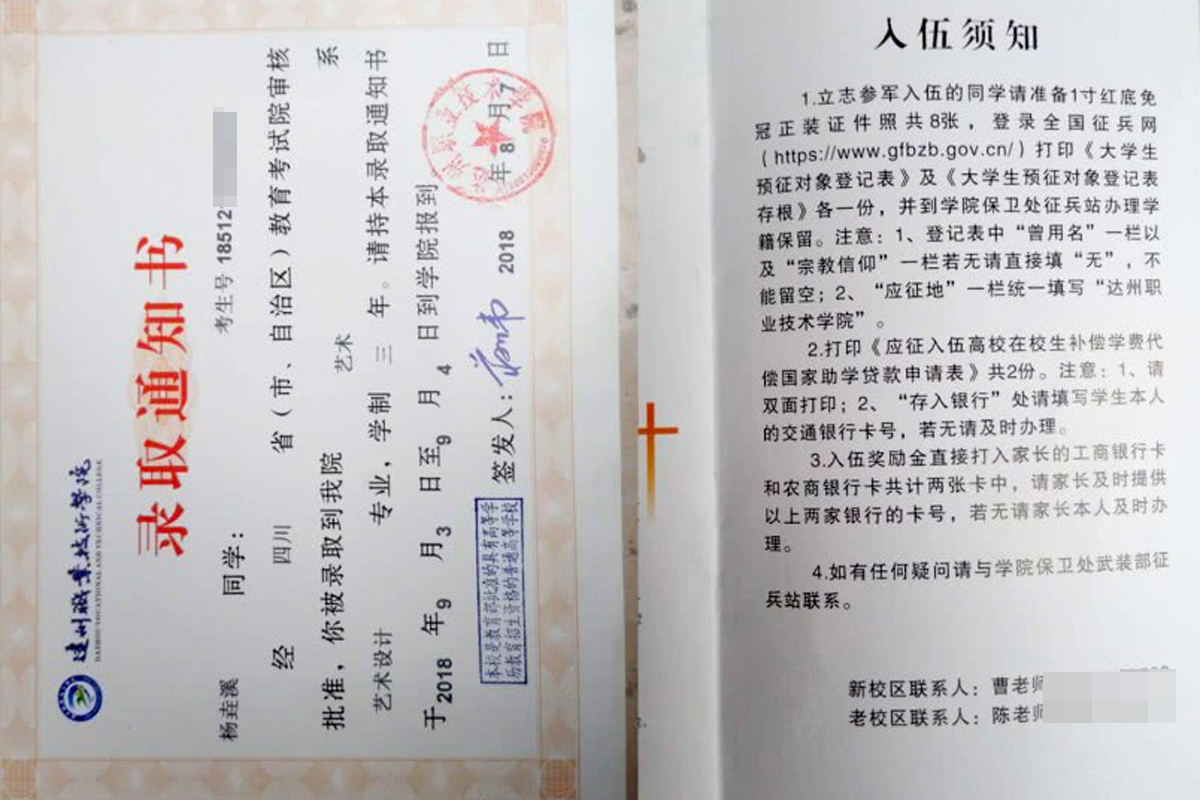 达州职业技术学院
DAZHOU VOCATIONAL AND TECHNICAL COLLEGE
录取通知书
考生号 18512
杨垚溪 同学:
经 四川 省(市、自治区)教育考试院审核
批准,你被录取到我院 艺术 系
艺术设计 专业,学制 三 年。请持本录取通知书
于2018 年9 月3 日至9 月4 日到学院报到
签发人:
2018 年8 月7 日
本校是教育部批准的具有高等学
历教育招生资格的普通高等学校
入伍须知
1.立志参军入伍的同学请准备1寸红底免
冠正装证件照共8张,登录全国征兵网
(https://www.gfbzb.gov.cn/)打印《大学生
预征对象登记表》及《大学生预征对象登记表
存根》各一份,并到学院保卫处征兵站办理学
籍保留。注意:1、登记表中“曾用名”一栏以
及“宗教信仰”一栏若无请直接填“无”,不
能留空;2、“应征地”一栏统一填写“达州职
业技术学院”。
2.打印《应征入伍高校在校生补偿学费代
偿国家助学贷款申请表》共2份。注意:1、请
双面打印;2、“存入银行”处请填写学生本人
的交通银行卡号,若无请及时办理。
3.入伍奖励金直接打入家长的工商银行卡
和农商银行卡共计两张卡中,请家长及时提供
以上两家银行的卡号,若无请家长本人及时办
理。
4.如有任何疑问请与学院保卫处武装部征
兵站联系。
新校区联系人:曹老师
老校区联系人:陈老师